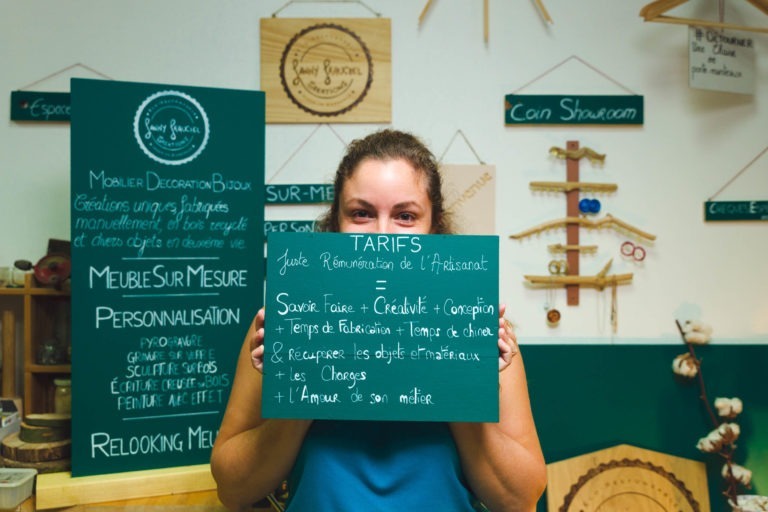 Espace
MOBILIER DÉCORATION BIJOUX
Créations uniques fabriquées
manuellement, en bois recyclé
et divers objets en deuxième vie.
MEUBLE SUR MESURE
PERSONNALISATION
PYROGRAVURE
GRAVURE SUR VERRE
SCULPTURE SUR BOIS
ÉCRITURE CREUSÉE SUR BOIS
PEINTURE AVEC EFFET
RELOOKING MEU
CRÉATIONS
SUR-ME
PERSON
TARIFS
Juste Rémunération de l'Artisanat
=
Savoir Faire + Créativité + Conception
+ Temps de Fabrication + Temps de chiner
& récupérer les objets et matériaux
+ les Charges
+ l'Amour de son métier
Coin Showroom
# DÉTOURNER
Une Chaise
en
porte-manteaux
CHÈQUES